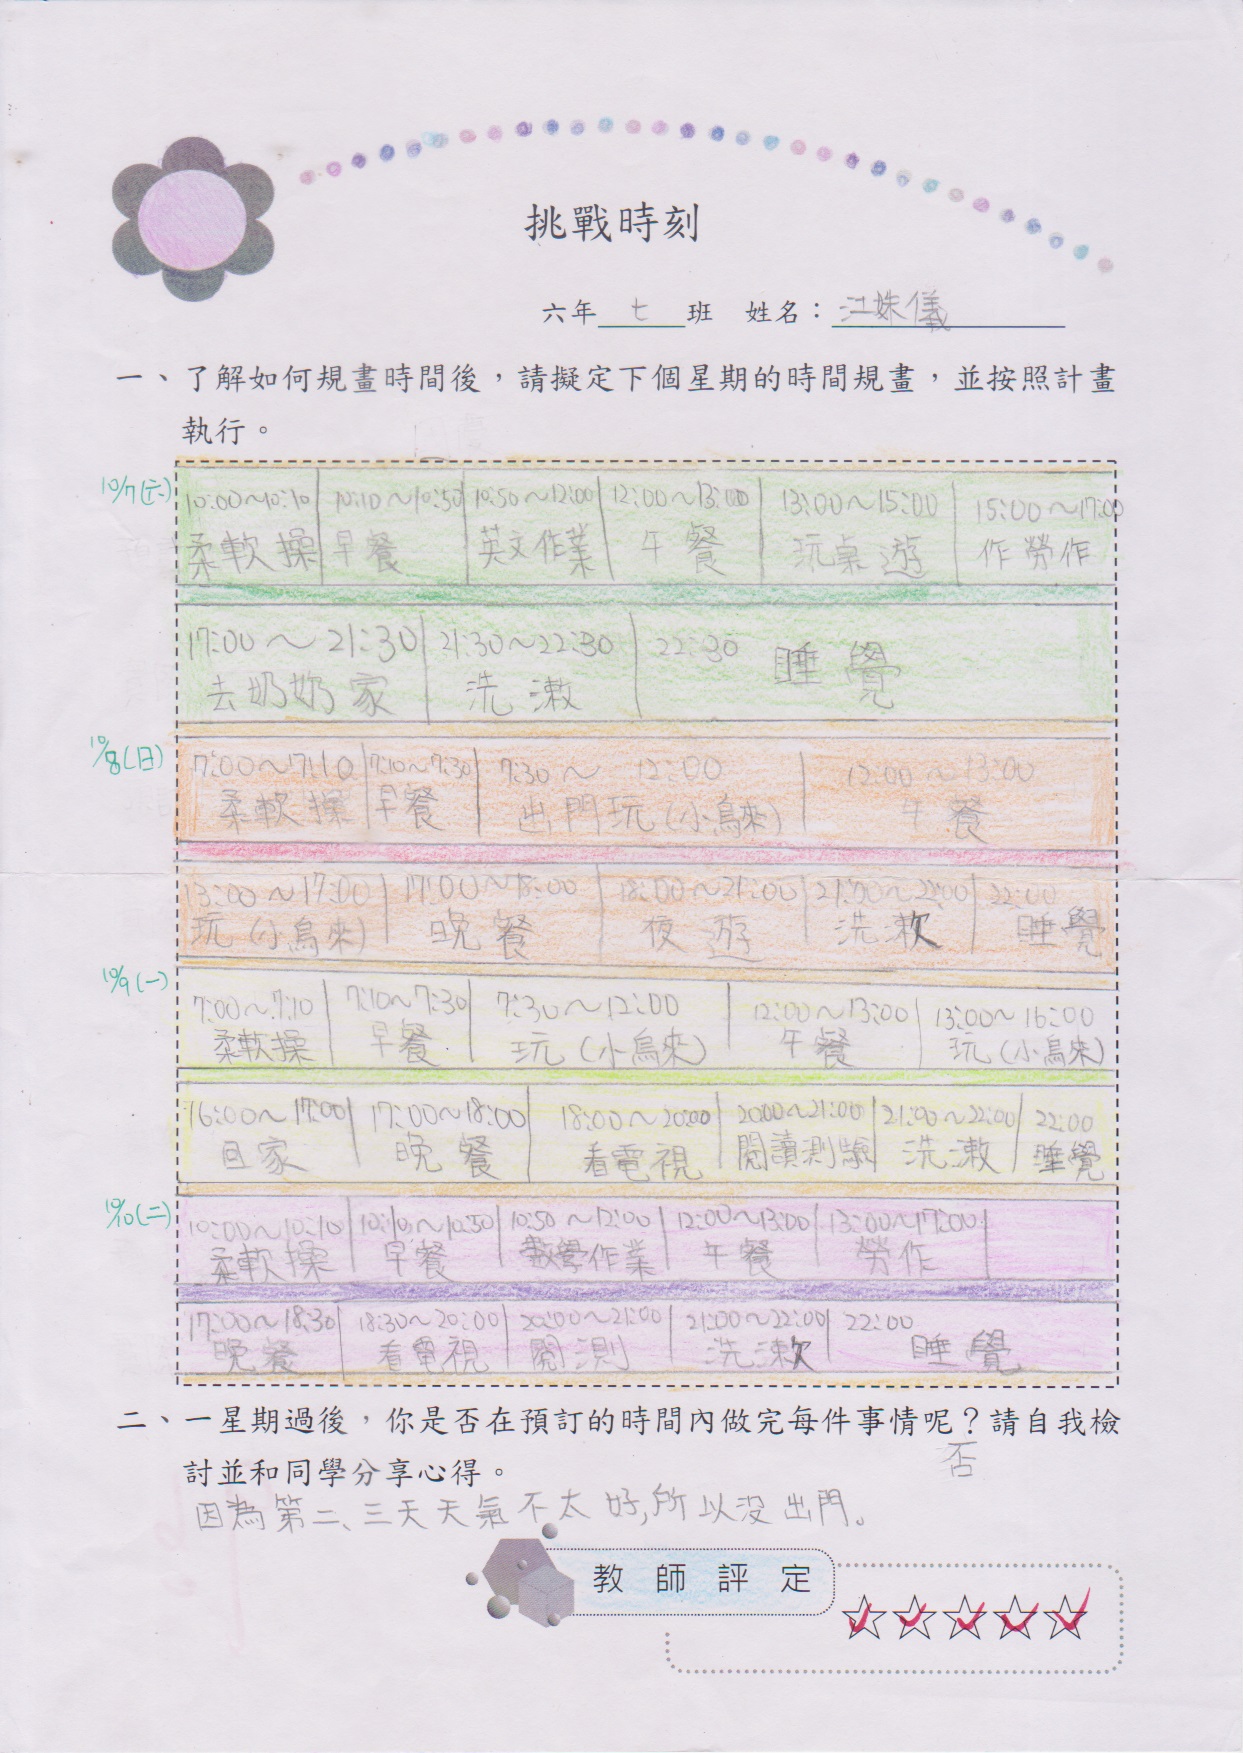 挑戰時刻
六年七班 姓名：江姝儀
一、了解如何規畫時間後，請擬定下個星期的時間規畫，並按照計畫
執行。
10/7(六)
10:00~10:10 10:10~10:50 10:50~12:00 12:00~13:00 13:00~15:00 15:00~17:00
柔軟操 早餐 英文作業 午餐 玩桌遊 作勞作
17:00~21:30 21:30~22:30 22:30 睡覺
去奶奶家 洗漱
10/8(日)
7:00~7:10 7:10~7:30 7:30~12:00 12:00~13:00
柔軟操 早餐 出門玩(小烏來) 午餐
13:00~17:00 17:00~18:00 18:00~21:00 21:00~22:00 22:00
玩(小烏來) 晚餐 夜遊 洗漱 睡覺
10/9(一)
7:00~7:10 7:10~7:30 7:30~12:00 12:00~13:00 13:00~16:00
柔軟操 早餐 玩(小烏來) 午餐 玩(小烏來)
16:00~17:00 17:00~18:00 18:00~20:00 20:00~21:00 21:00~22:00 22:00
回家 晚餐 看電視 閱讀測驗 洗漱 睡覺
10/10(二)
10:00~10:10 10:10~10:50 10:50~12:00 12:00~13:00 13:00~17:00
柔軟操 早餐 數學作業 午餐 勞作
17:00~18:30 18:30~20:00 20:00~21:00 21:00~22:00 22:00
晚餐 看電視 閱測 洗漱 睡覺
二、一星期過後，你是否在預訂的時間內做完每件事情呢？請自我檢
討並和同學分享心得。
否
因為第二、三天天氣不太好,所以沒出門。
教師評定